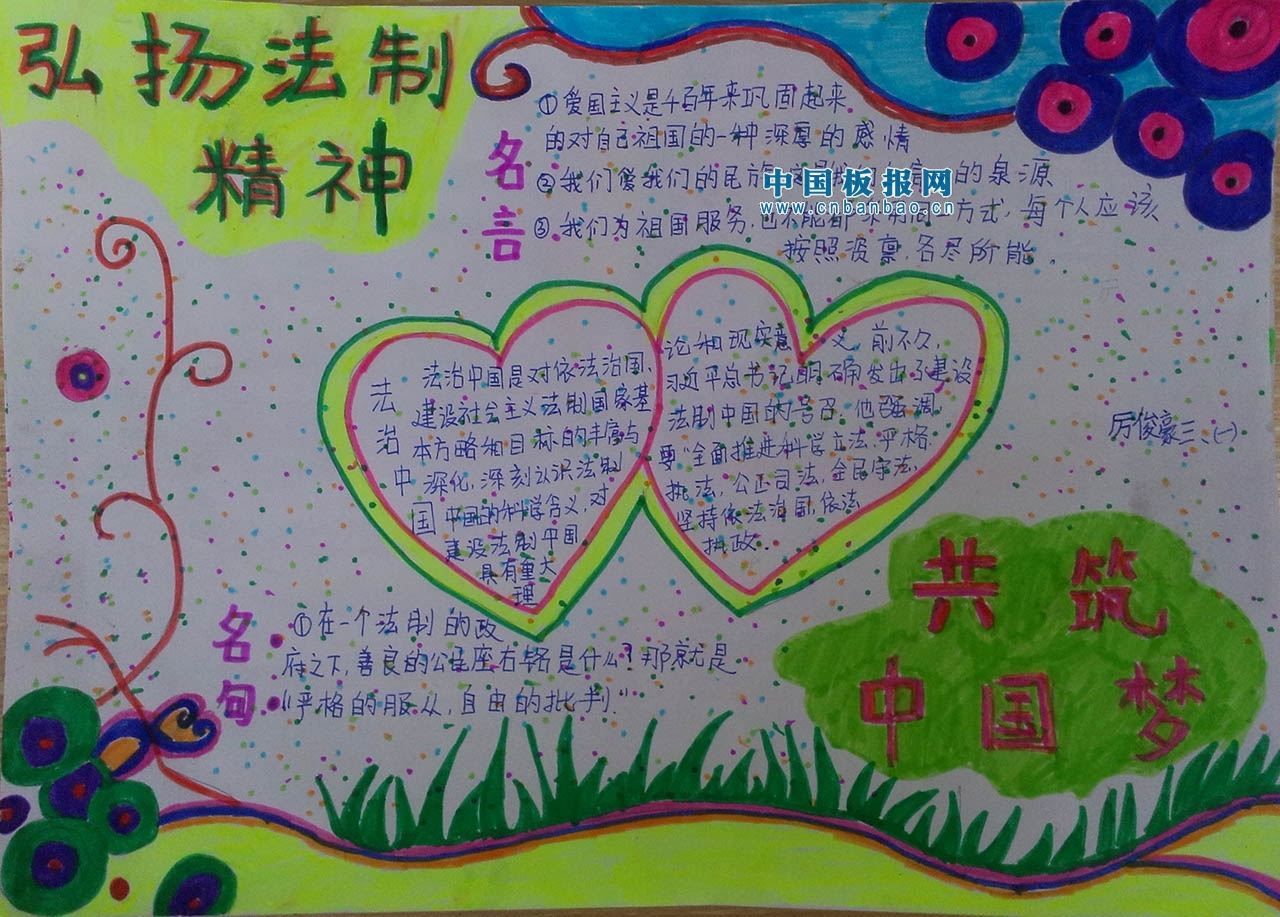 弘扬法制
精神
名言
①爱国主义是千百年来巩固起来
的对自己祖国的一种深厚的感情
②我们爱我们的民族,这是我们自信的泉源
中国板报网
www.cnbanbao.cn
③我们为祖国服务,也不能都采用同一方式,每个人应该
按照资禀,各尽所能。
法治中国
法治中国是对依法治国、
建设社会主义法制国家基
本方略和目标的丰富与
深化,深刻认识法制
中国的科学含义,对
建设法制中国
具有重大
理
论和现实意义。前不久,
习近平总书记明确发出了建设
法制中国的号召,他强调
要“全面推进科学立法,严格
执法,公正司法,全民守法,
坚持依法治国,依法
执政.
厉俊豪三、(一)
名句:
①在一个法制的政
府之下,善良的公民座右铭是什么?那就是
“严格的服从,自由的批判.”
共筑
中国梦